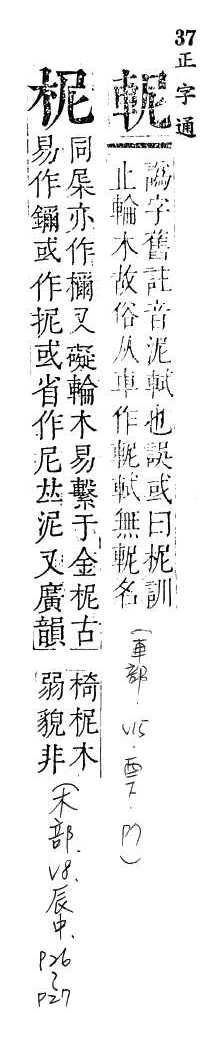 37
正字通
軶
譌字舊註音泥軾也誤或曰柅訓
止輪木故俗从車作軶軾無軶名
(車部.V15.酉下.P7)
柅
同㞋亦作檷又礙輪木易繫于金柅古
易作鑈或作抳或省作尼𠀤泥又廣韻
椅柅木
弱貌非
(木部.V8.辰中.P26~P27)